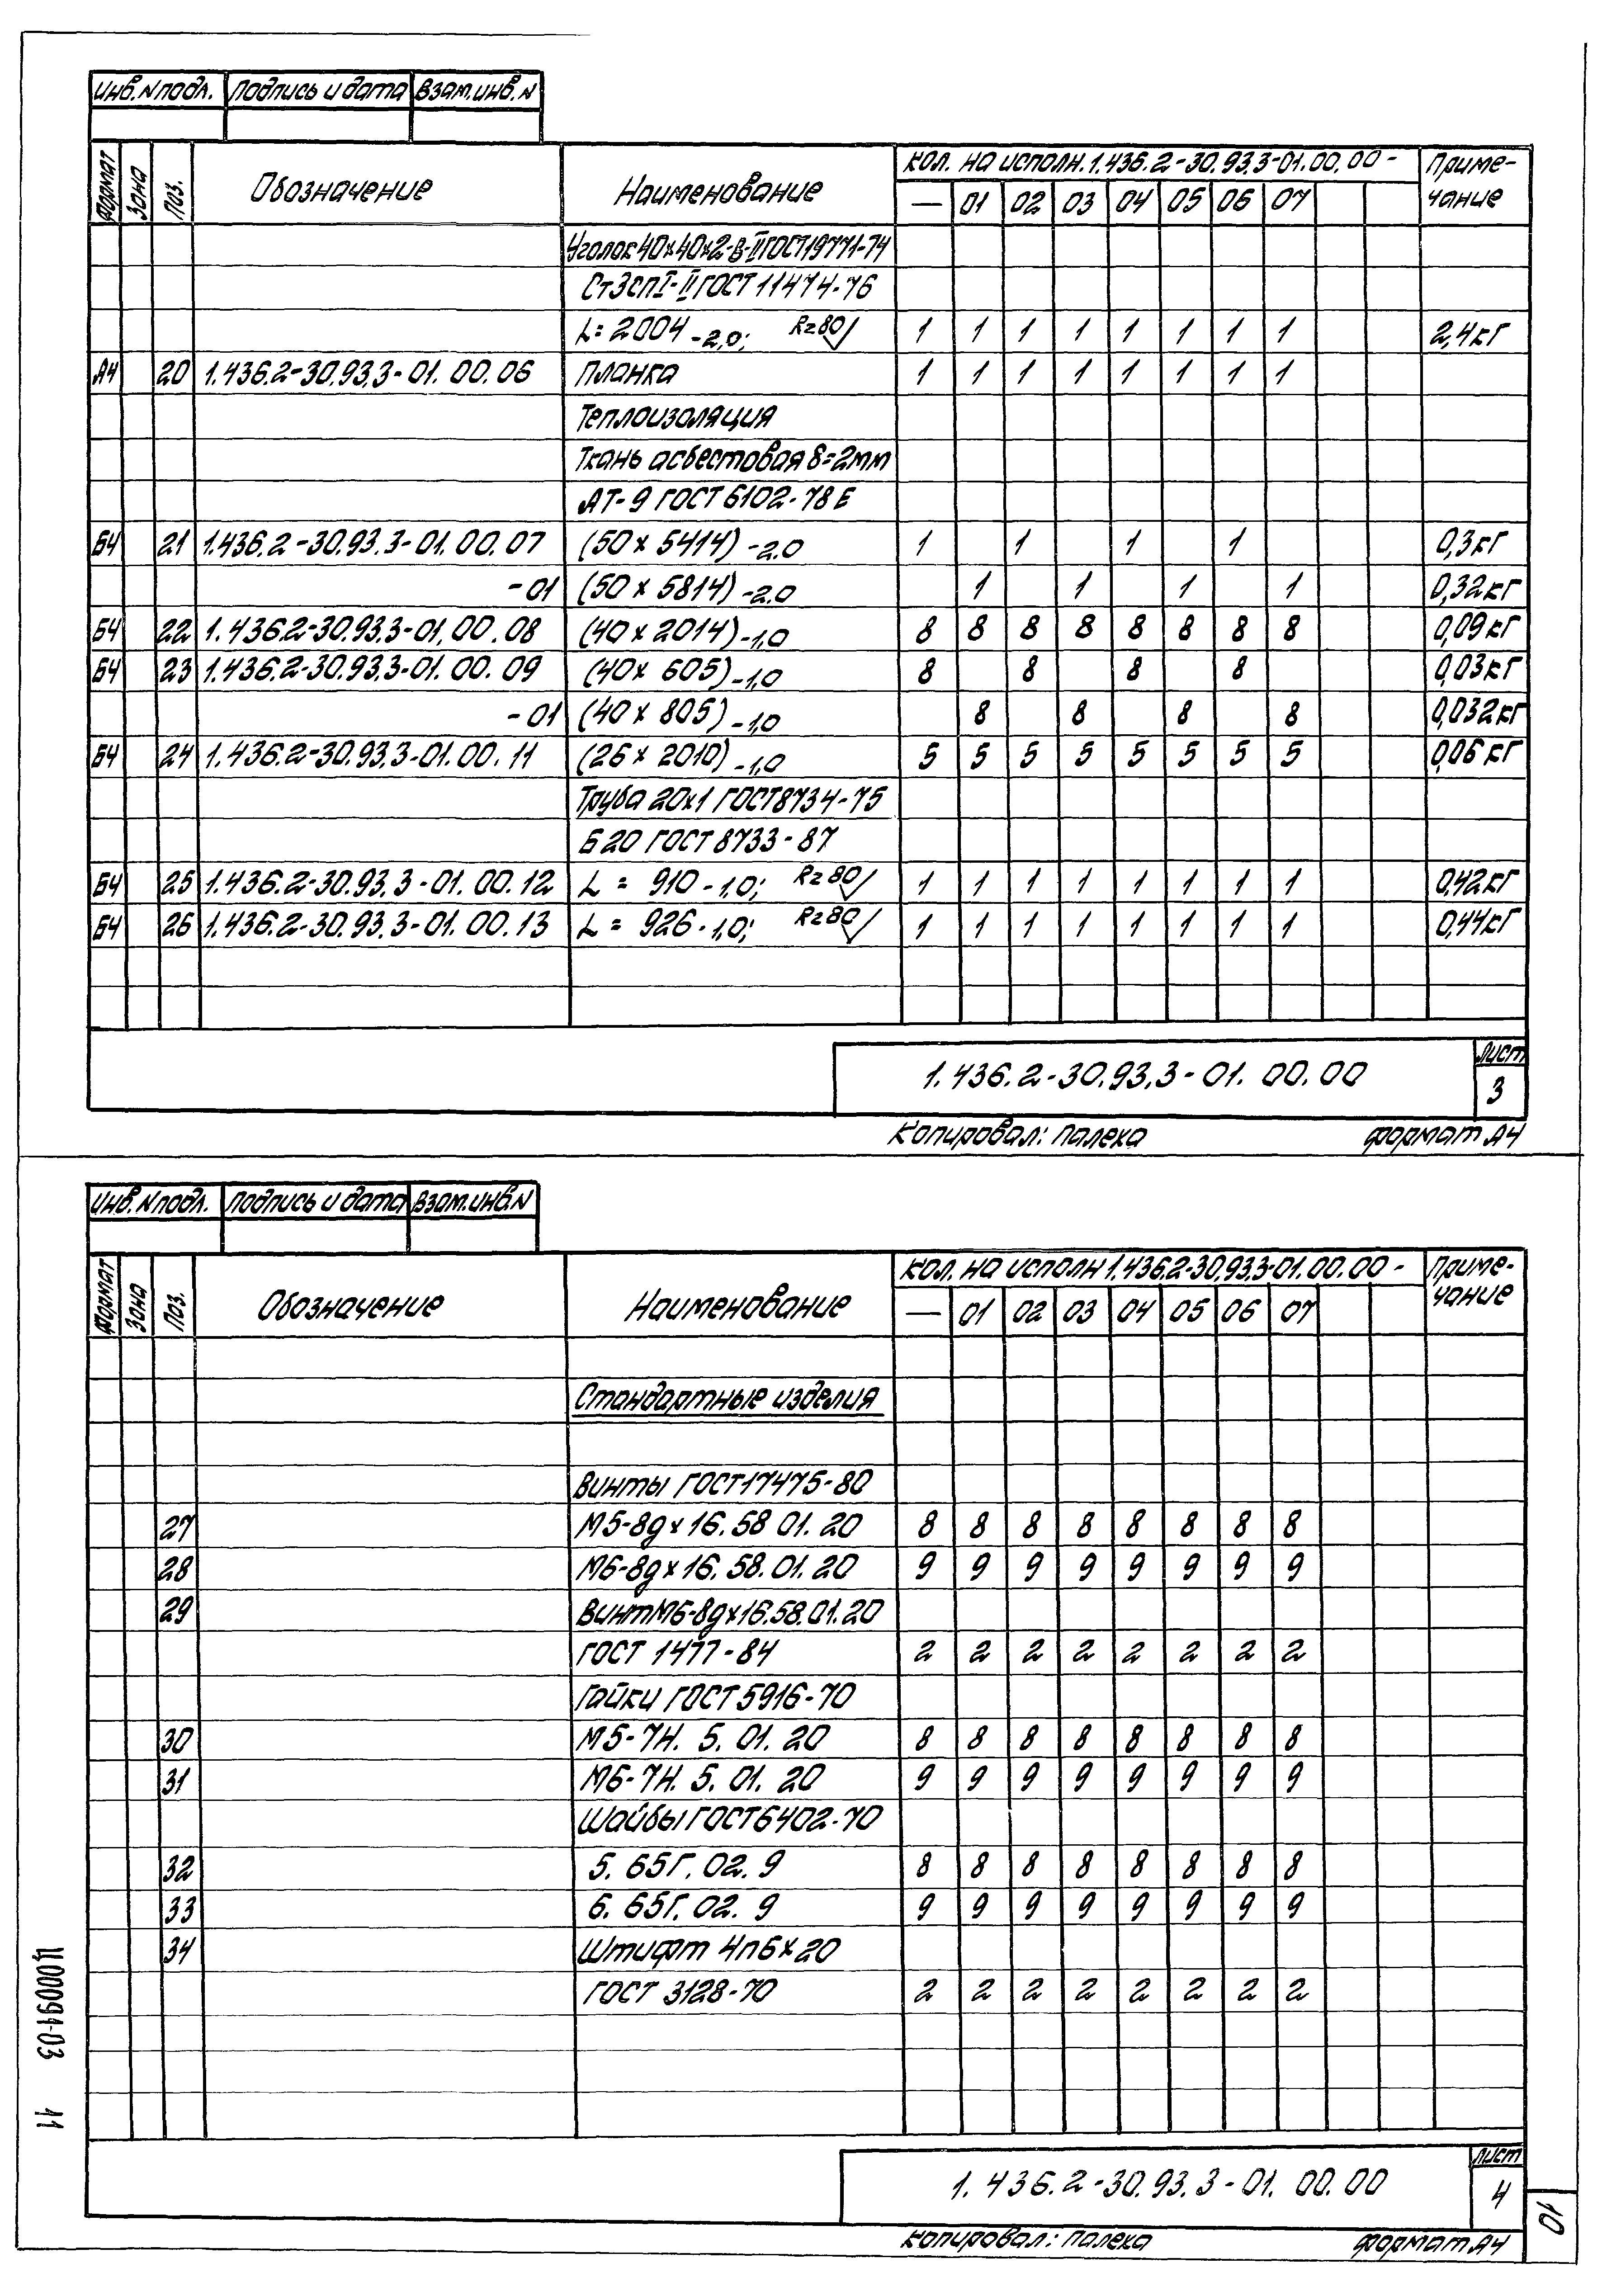 Инв. N подл. Подпись и дата Взам. инв. N
Формат Зона Поз. Обозначение Наименование Кол. на исполн. 1.436.2-30.93.3-01.00.00 - Примечание
— 01 02 03 04 05 06 07
Уголок 40×40×2-В-II ГОСТ 19771-74
Ст3спI-II ГОСТ 11474-76
L=2004 -2,0; Rz80 1 1 1 1 1 1 1 1 2,4кг
А4 20 1.436.2-30.93.3-01.00.06 Планка 1 1 1 1 1 1 1 1
Теплоизоляция
Ткань асбестовая δ=2мм
АТ-9 ГОСТ 6102-78Е
Б4 21 1.436.2-30.93.3-01.00.07 (50×5414) -2.0 1 1 1 1 0,3кг
-01 (50×5814) -2.0 1 1 1 1 0,32кг
Б4 22 1.436.2-30.93.3-01.00.08 (40×2014) -1,0 8 8 8 8 8 8 8 8 0,09кг
Б4 23 1.436.2-30.93.3-01.00.09 (40×605) -1,0 8 8 8 8 0,03кг
-01 (40×805) -1,0 8 8 8 8 0,032кг
Б4 24 1.436.2-30.93.3-01.00.11 (26×2010) -1,0 5 5 5 5 5 5 5 5 0,06кг
Труба 20×1 ГОСТ 8734-75
Б20 ГОСТ 8733-87
Б4 25 1.436.2-30.93.3-01.00.12 L = 910 -1,0; Rz80 1 1 1 1 1 1 1 1 0,42кг
Б4 26 1.436.2-30.93.3-01.00.13 L = 926 -1,0; Rz80 1 1 1 1 1 1 1 1 0,44кг
1.436.2-30.93.3-01.00.00
Лист
3
Копировал: Палеха Формат А4
Инв. N подл. Подпись и дата Взам. инв. N
Формат Зона Поз. Обозначение Наименование Кол. на исполн 1.436.2-30.93.3-01.00.00 - Примечание
— 01 02 03 04 05 06 07
Стандартные изделия
Винты ГОСТ 17475-80
27 М5-8g×16.58 01.20 8 8 8 8 8 8 8 8
28 М6-8g×16.58.01.20 9 9 9 9 9 9 9 9
29 Винт М6-8g×16.58.01.20
ГОСТ 1477-84 2 2 2 2 2 2 2 2
Гайки ГОСТ 5916-70
30 М5-7Н.5.01.20 8 8 8 8 8 8 8 8
31 М6-7Н.5.01.20 9 9 9 9 9 9 9 9
Шайбы ГОСТ 6402-70
32 5.65Г.02.9 8 8 8 8 8 8 8 8
33 6.65Г.02.9 9 9 9 9 9 9 9 9
34 Штифт 4п6×20
ГОСТ 3128-70 2 2 2 2 2 2 2 2
1.436.2-30.93.3-01.00.00
Лист
4
Копировал: Палеха Формат А4
Ц00091-03 11
10